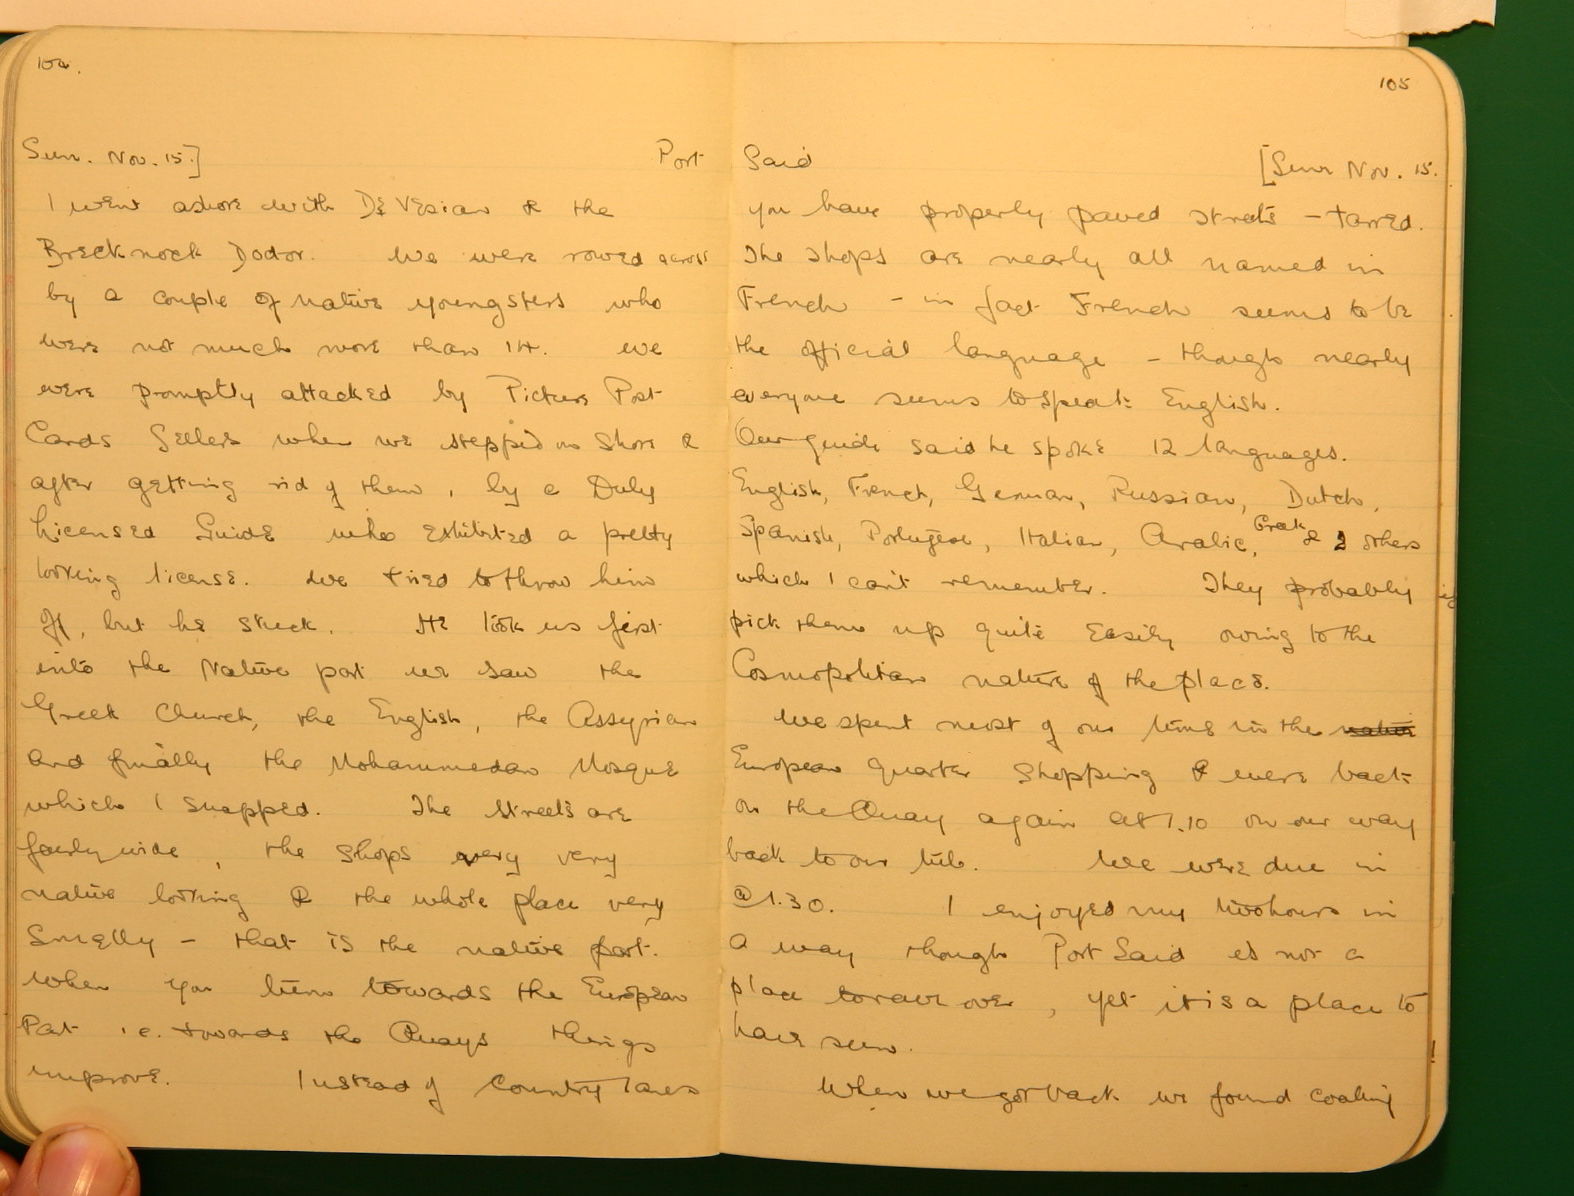 104.
Sun. Nov. 15.] Port
I went ashore with De Vesian & the
Brecknock Doctor. We were rowed across
by a couple of native youngsters who
were not much more than 14. We
were promptly attacked by Picture Post
Cards Sellers when we stepped on Shore &
after getting rid of them, by a Duly
Licensed Guide who exhibited a pretty
looking license. We tried to throw him
off, but he stuck. He took us first
into the Native part we saw the
Greek Church, the English, the Assyrian
and finally the Mohammedan Mosque
which I snapped. The streets are
fairly wide, the shops very very
native looking & the whole place very
Smelly - that is the native part.
When you turn towards the European
Part i.e. towards the Quays things
improve. Instead of Country lanes
105
Said [Sun Nov. 15.
you have properly paved streets - tarred.
The shops are nearly all named in
French - in fact French seems to be
the official language - though nearly
everyone seems to speak English.
Our guide said he spoke 12 languages.
English, French, German, Russian, Dutch,
Spanish, Portugese, Italian, Arabic, Greek & 2 others
which I can't remember. They probably
pick them up quite easily owing to the
Cosmopolitan nature of the place.
We spent most of our time in the native
European quarter shopping & were back
on the Quay again at 1.10 on our way
back to our tub. We were due in
@ 1.30. I enjoyed my two hours in
a way though Port Said is not a
place to rave over, yet it is a place to
have seen.
When we got back we found coaling